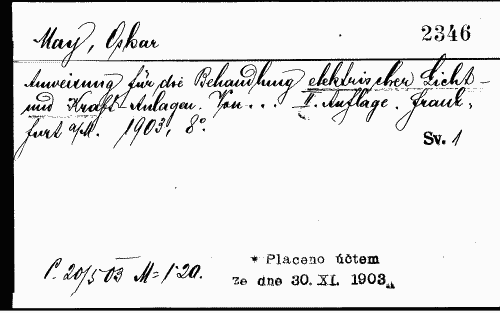 May, Oskar
2346
Anweisung für die Behandlung elektrischer Licht-
und Kraft-Anlagen. Von... II. Auflage. Frank-
furt a/M. 1903, 8°.
Sv. 1
P. 20/5 03 M= 1·20.
* Placeno účtem
ze dne 30. XI. 1903